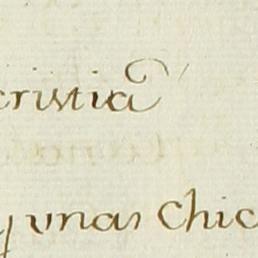 cristia
y unas Chic